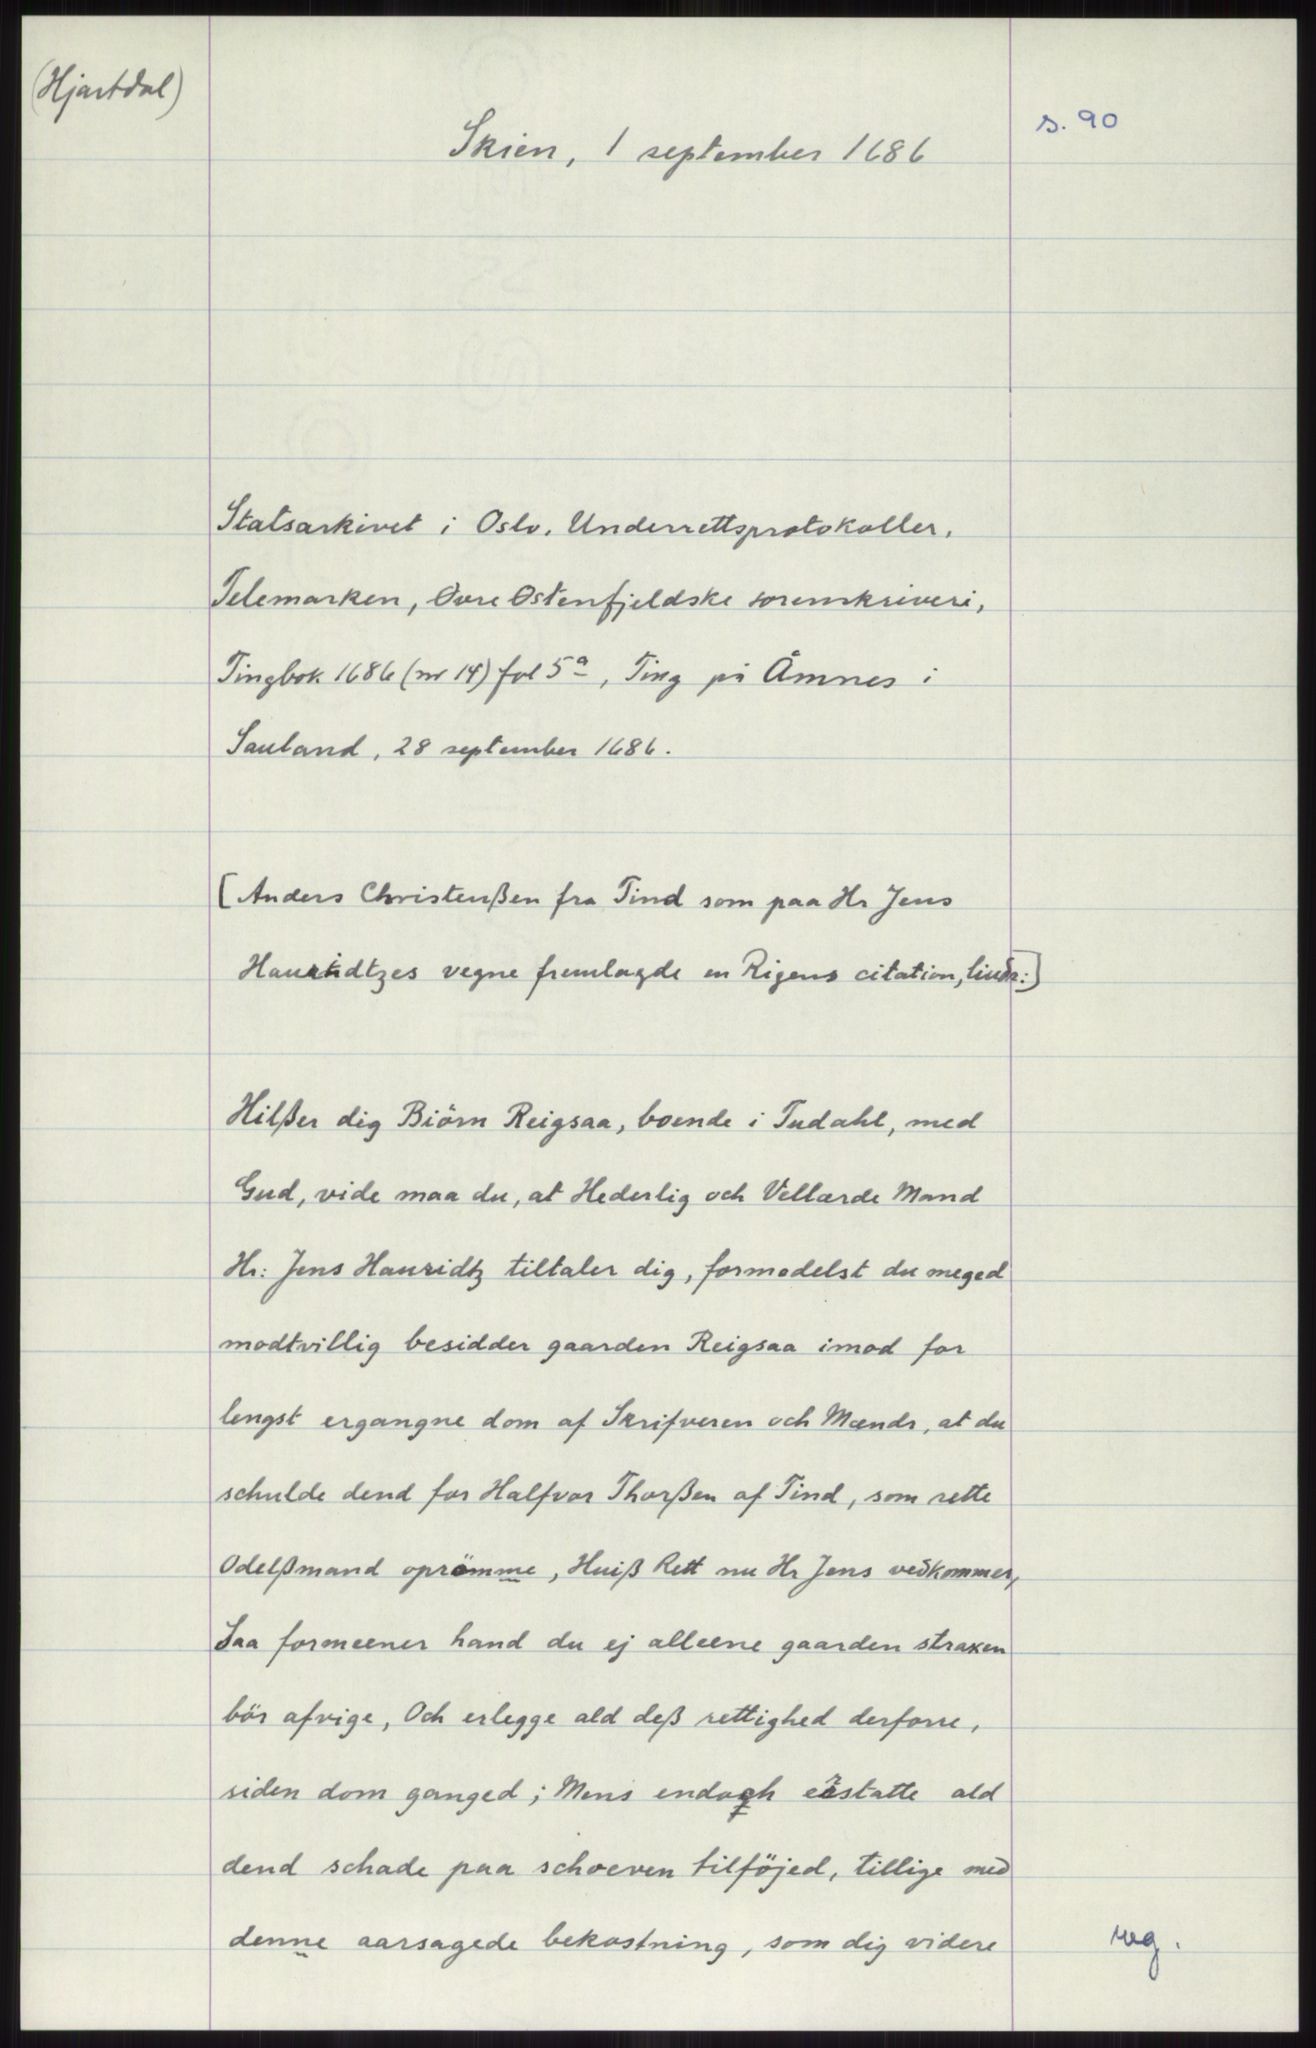 (Hjartdal)
s. 90
Skien, 1 september 1686
Statsarkivet i Oslo. Underrettsprotokoller,
Telemarken, Øvre Østenfjeldske sorenskriveri,
Tingbok 1686 (nr 14) fol 5a, Ting på Åmnes i
Sauland, 28 september 1686.
[Anders Christenßen fra Tind som paa Hr Jens
Hauridtzes vegne fremlagde en Rigens citation, liudr:]
Hilßer dig Biörn Reigsaa, boende i Tudahl, med
Gud, vide maa du, at Hederlig och Vellærde Mand
Hr: Jens Hauridtz tiltaler dig, formedelst du meged
modtvillig besidder gaarden Reigsaa imod for
lengst ergangne dom af Skrifveren och Mændr, at du
schulde dend for Halfvor Thorßen af Tind, som rette
Odelßmand oprömme, Huiß Rett nu Hr Jens vedkommer,
Saa formeener hand du ej alleene gaarden straxen
bör afvige, Och erlegge ald deß rettighed derforre,
siden dom ganged; Mens endogh erstatte ald
dend schade paa schoeven tilföjed, tillige med
denne aarsagede bekostning, som dig videre
reg.